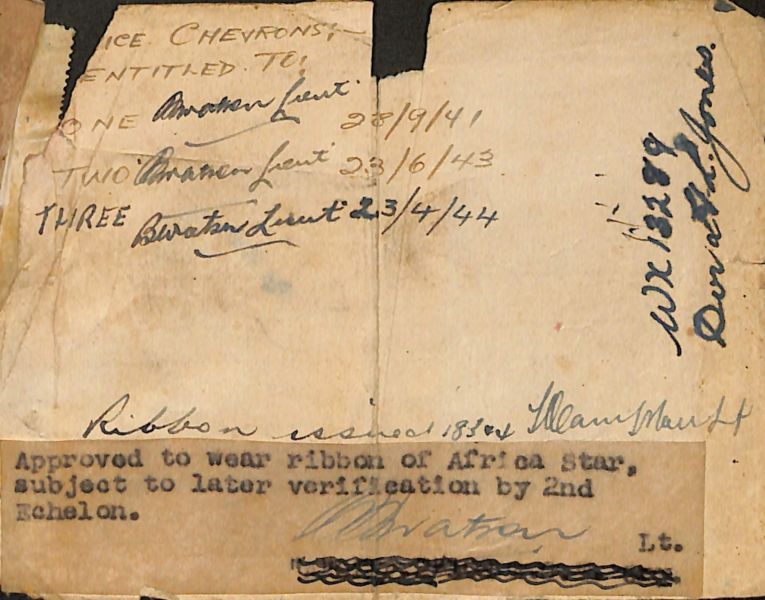 ICE CHEVRONS;—
ENTITLED TO;
ONE BWatson Lieut 23/9/41
TWO BWatson Lieut 23/6/43
THREE BWatson Lieut 23/4/44
WX 13289
Ribbon issued
Approved to wear ribbon of Africa Star,
subject to later verification by 2nd
Echelon.
BWatson
Lt.